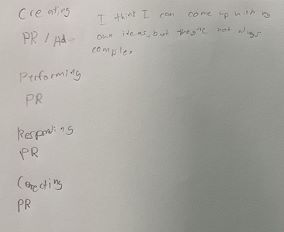 Creating
PR / Ad
I think I can come up with
own ideas, but they're not always
complex
Performing
PR
Responding
PR
Connecting
PR